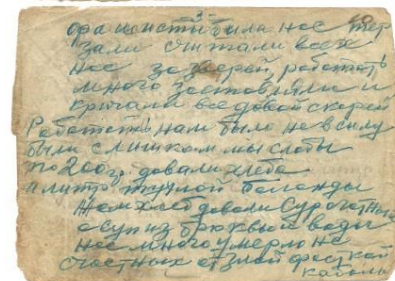 -3-
фашисты били нас тер
зали считали всех
нас за зверей работать
много заставляли и
кричали все довай скорей
Работать нам было не в силу
были слишком мы слабы
по 200 гр. довали хлеба
и литр тухлой баланды
Нам хлеб довали Сурогатный
а суп из брюквы и воды
нас много умерло не
счастных от злой